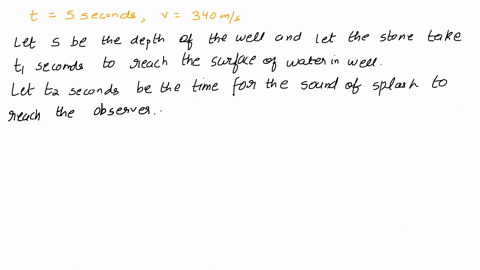 t = 5 seconds, v = 340 m/s
Let s be the depth of the well and let the stone take
t₁ seconds to reach the surface of water in well.
Let t₂ seconds be the time for the sound of splash to
reach the observer.